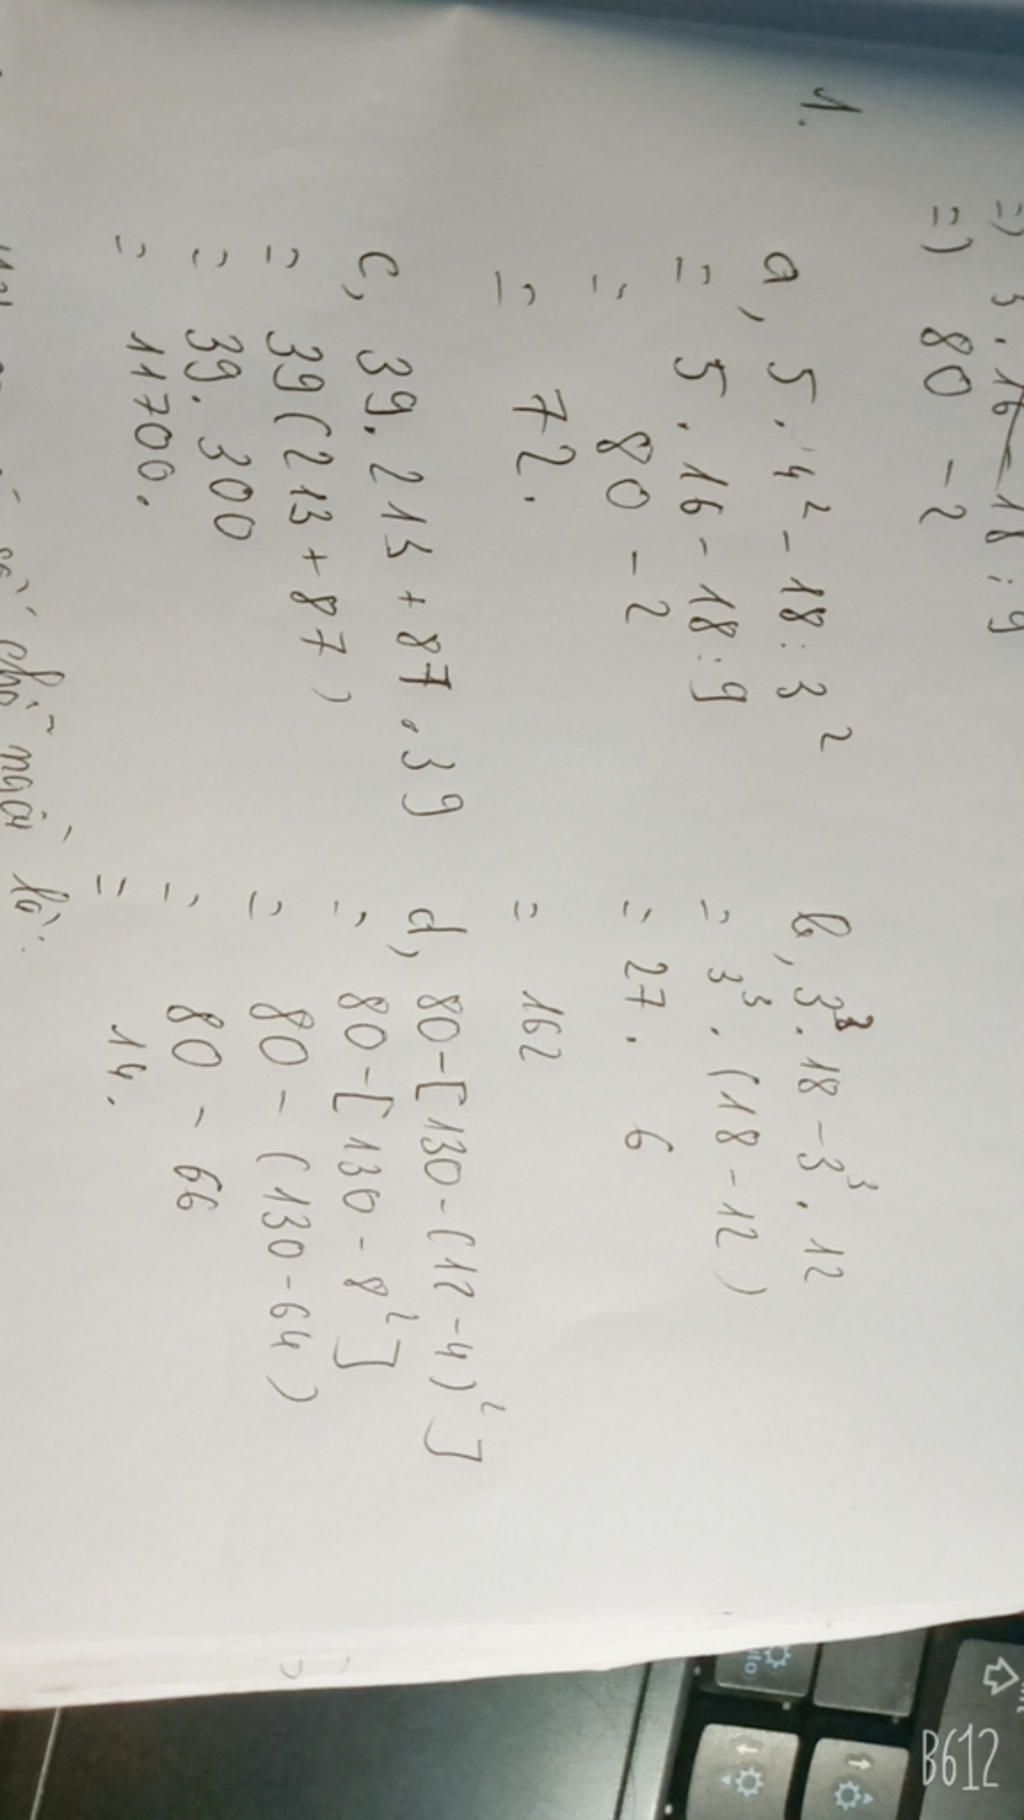 =) 5.16-18:9
=) 80 - 2
1.
a, 5.4² - 18:3²
= 5.16 - 18:9
= 80 - 2
= 72.
b, 3³.18 - 3³.12
= 3³.(18-12)
= 27. 6
= 162
c, 39.213 + 87.39
= 39(213+87)
= 39.300
= 11700.
d, 80-[130-(12-4)²]
= 80-[130-8²]
= 80-(130-64)
= 80 - 66
= 14.
số chỗ ngồi là:
B612